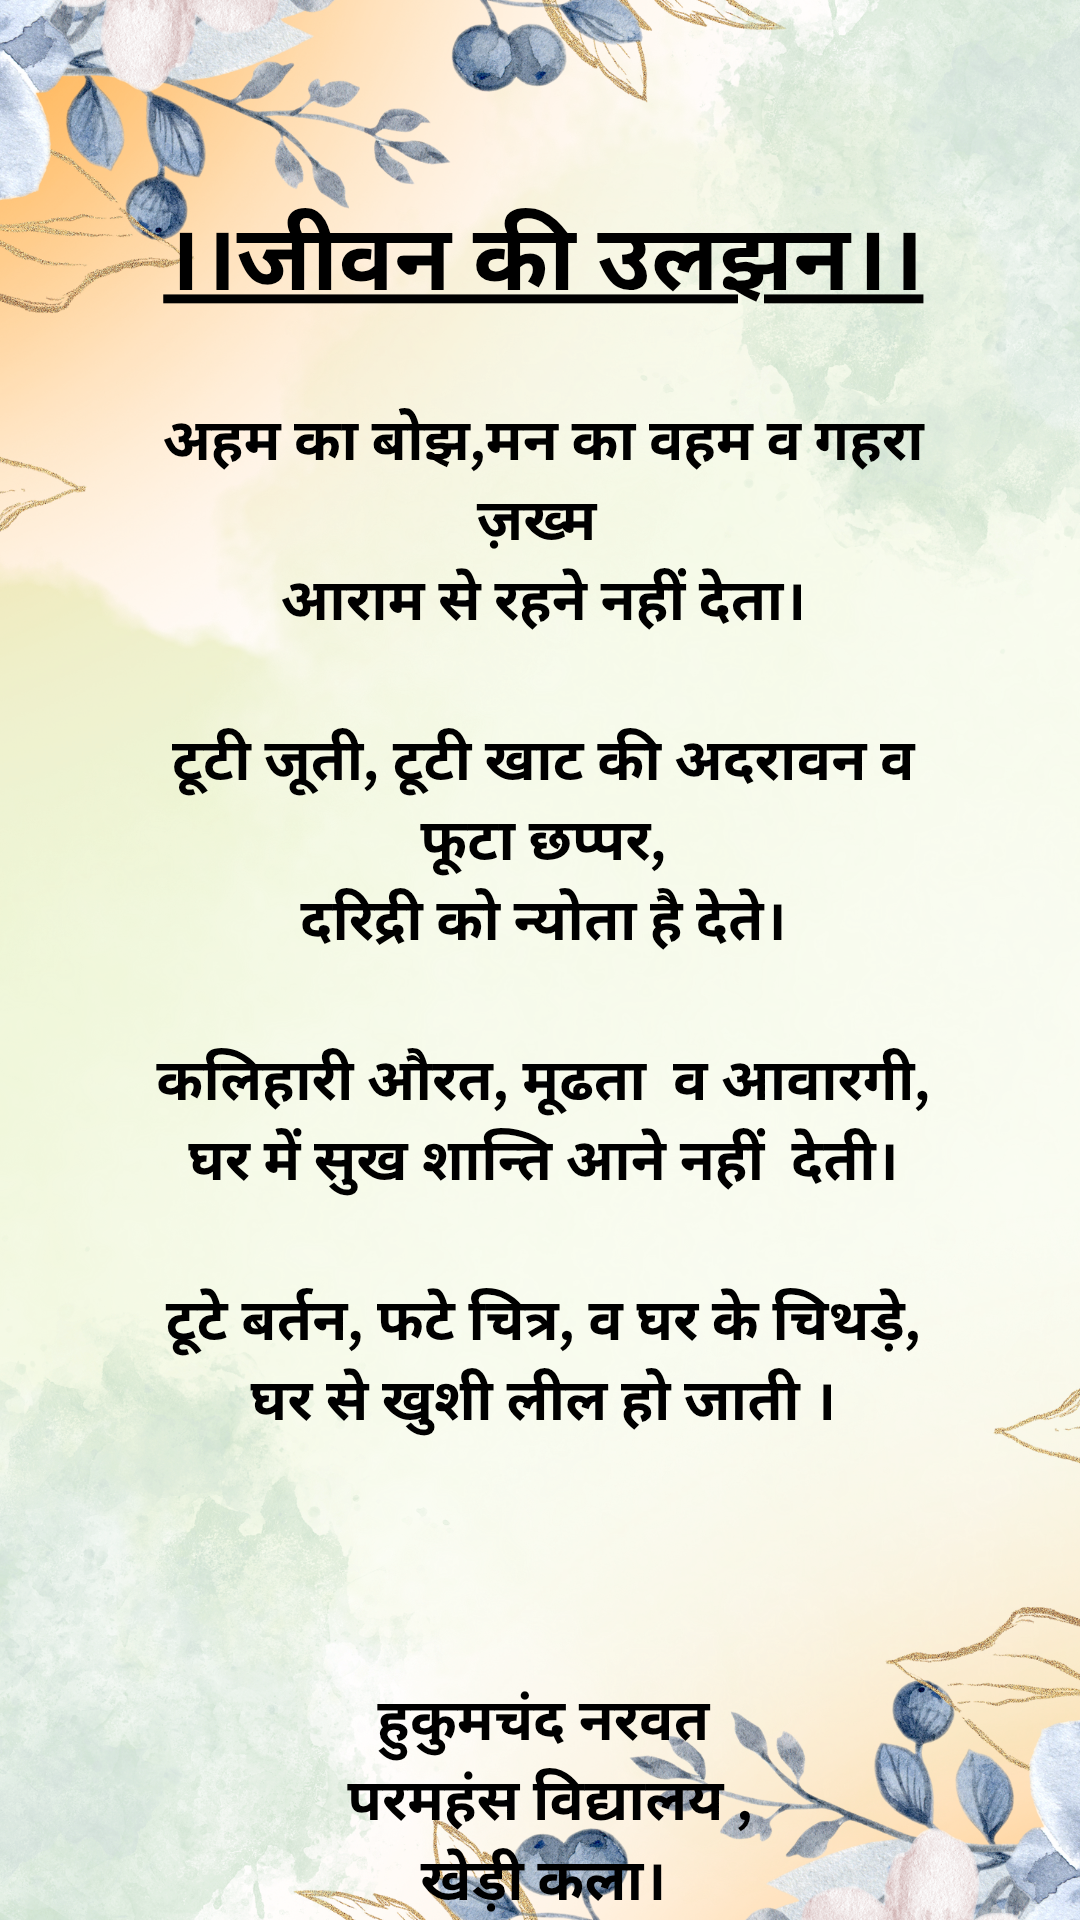 ।।जीवन की उलझन।।
अहम का बोझ,मन का वहम व गहरा
ज़ख्म
आराम से रहने नहीं देता।
टूटी जूती, टूटी खाट की अदरावन व
फूटा छप्पर,
दरिद्री को न्योता है देते।
कलिहारी औरत, मूढता  व आवारगी,
घर में सुख शान्ति आने नहीं  देती।
टूटे बर्तन, फटे चित्र, व घर के चिथड़े,
घर से खुशी लील हो जाती ।
हुकुमचंद नरवत
परमहंस विद्यालय ,
खेड़ी कला।